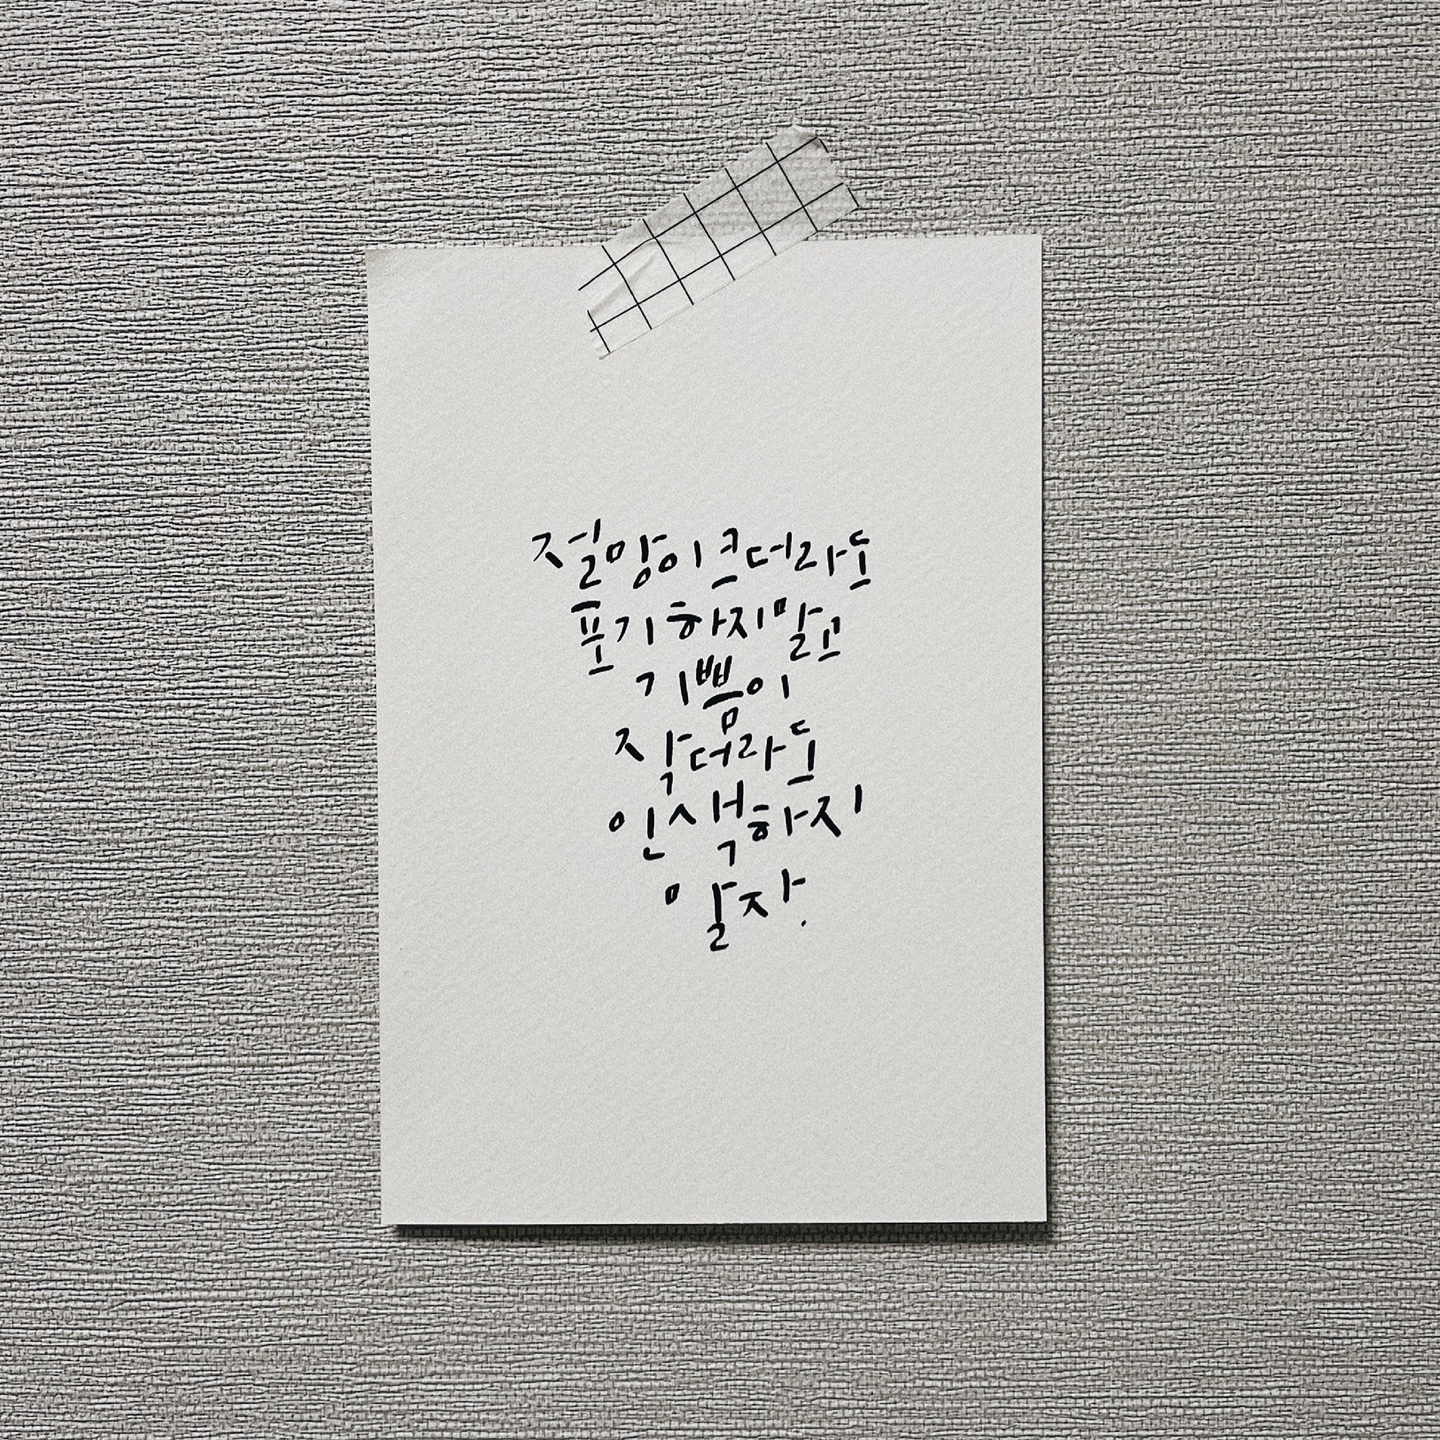 절망이 크더라도
포기하지말고
기쁨이
작더라도
인색하지
말자.